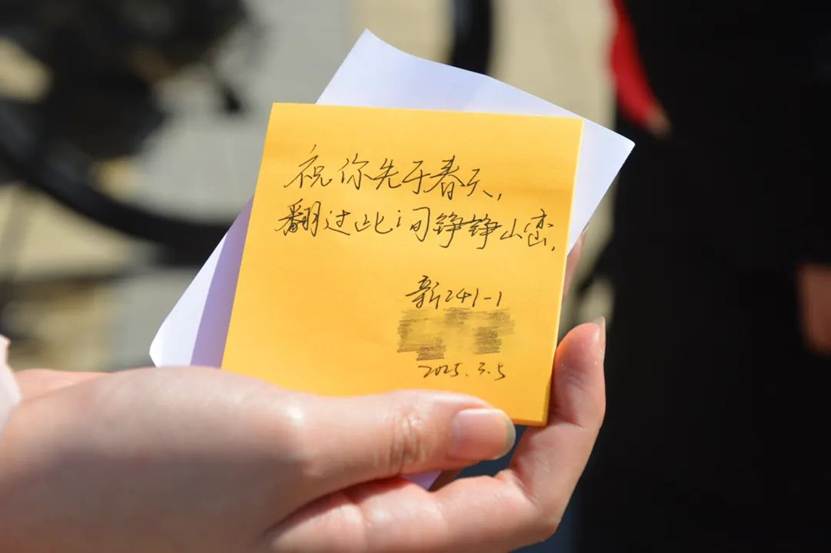 祝你先于春天,
翻过此间铮铮山峦.
新241-1
2025.3.5